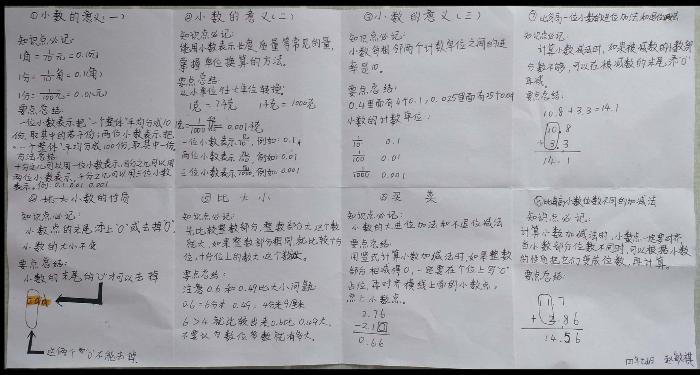 ①小数的意义(一)
知识点必记:
1角=1/10元=0.1元
1分=1/10角=0.1(角)
1分=1/100元=0.01元
要点总结:
一位小数表示把"一个整体"平均分成10
份,取其中的若干份;两位小数表示把
"一个整体"平均分成100份,取其中一份
方法总结
十分之几可以用一位小数表示,百分之几可以用
两位小数表示,千分之几可以用三位小数
表示。例:0.1 0.01 0.001
②小数的意义(二)
知识点必记:
使用小数表示长度,质量等常见的量,
掌握单位换算的方法。
要点总结:
从小单位往大单位转换
1克=?千克 1千克=1000克
1克=1/1000千克=0.001千克
一位小数表示1/10,例如:0.1
两位小数表示1/100,例如:0.01
三位小数表示1/1000,例如:0.001
③小数的意义(三)
知识点必记:
小数每相邻两个计数单位之间的进
率是10。
要点总结:
0.4里面有4个0.1,0.025里面有25个0.001
小数的计数单位:
1/10 0.1
1/100 0.01
1/1000 0.001
知识点必记:
计算小数减法时,如果被减数的小数部
分数不够,可以在被减数的末尾添"0"
再减
要点总结:
10.8+3.3=14.1
10.8
+ 3.3
14.1
④比大小数的性质
知识点必记:
小数点的末尾添上"0"或去掉"0",
小数的大小不变
要点总结:
小数的末尾的"0"才可以去掉
这两个"0"不能去掉
⑤比大小
知识点必记:
先比较整数部分,整数部分大这个数
就大,如果整数部分相同就比较十分
位,十分位上的数大这个数就大。
要点总结:
注意0.6和0.49比大小问题
6>4就比较出来0.6比0.49大,
不要认为数位多数就有多大。
⑥买菜
知识点必记:
小数的不进位加法和不退位减法
要点总结:
用竖式计算小数加减法时,如果整数
部分相减得0,一定要在个位上写"0"
占位,再对齐横线上面的小数点,
点上小数点。
2.76
-2.10
0.66
知识点必记:
计算小数加减法时,小数点一定要对齐,
当小数部分位数不同时,可以根据小数
的性质把它们变成位数,再计算。
要点总结:
14.56